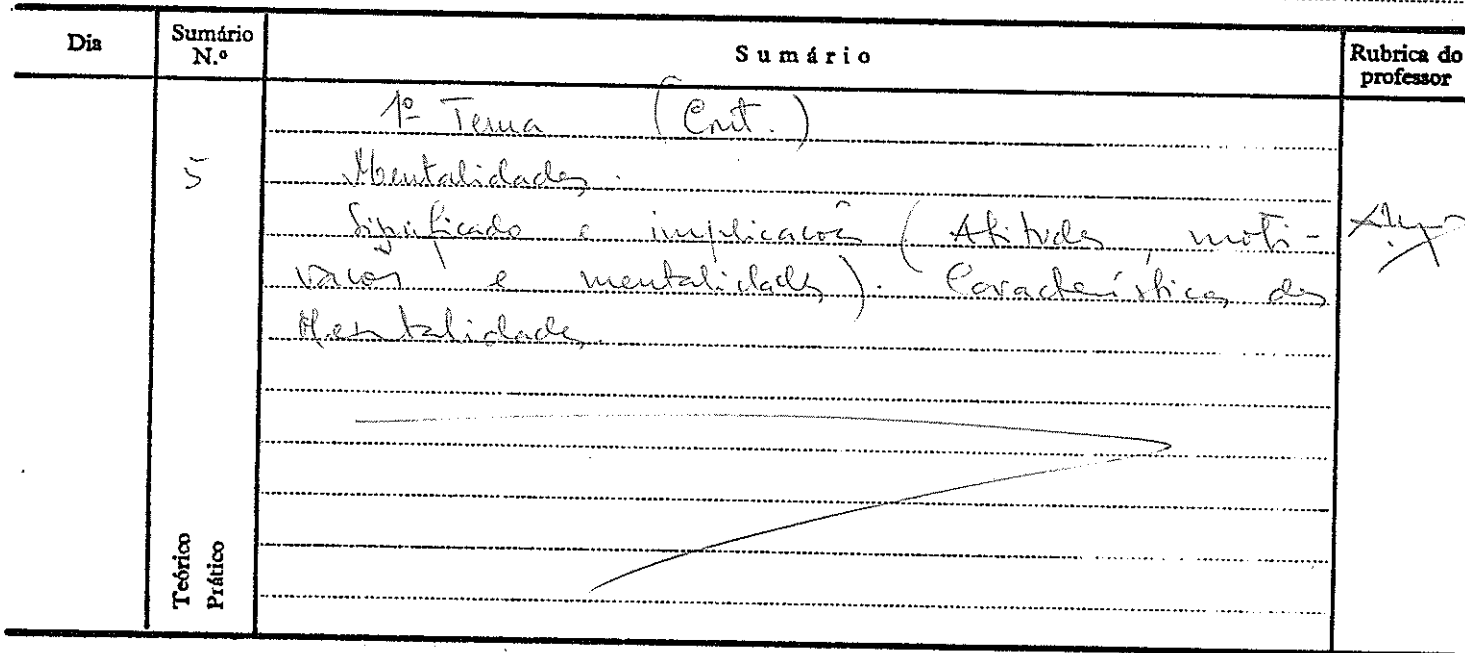 Dia
Sumário N.º
Sumário
Rubrica do professor
1º Tema (Cont.)
5
Mentalidades.
Significado e implicações (Atitudes, moti-
vações e mentalidades). Características das
Mentalidades.
Teórico
Prático